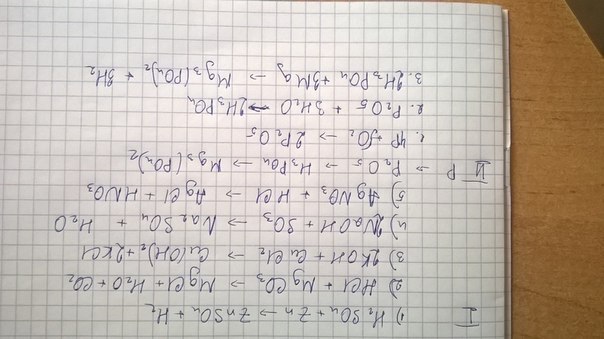 I
1) H₂SO₄ + Zn → ZnSO₄ + H₂
2) HCl + MgCO₃ → MgCl + H₂O + CO₂
3) 2KOH + CuCl₂ → Cu(OH)₂ + 2KCl
4) 2NaOH + SO₃ → Na₂SO₄ + H₂O
5) AgNO₃ + HCl → AgCl + HNO₃
II P → P₂O₅ → H₃PO₄ → Mg₃(PO₄)₂
1. 4P + 5O₂ → 2P₂O₅
2. P₂O₅ + 3H₂O → 2H₃PO₄
3. 2H₃PO₄ + 3Mg → Mg₃(PO₄)₂ + 3H₂